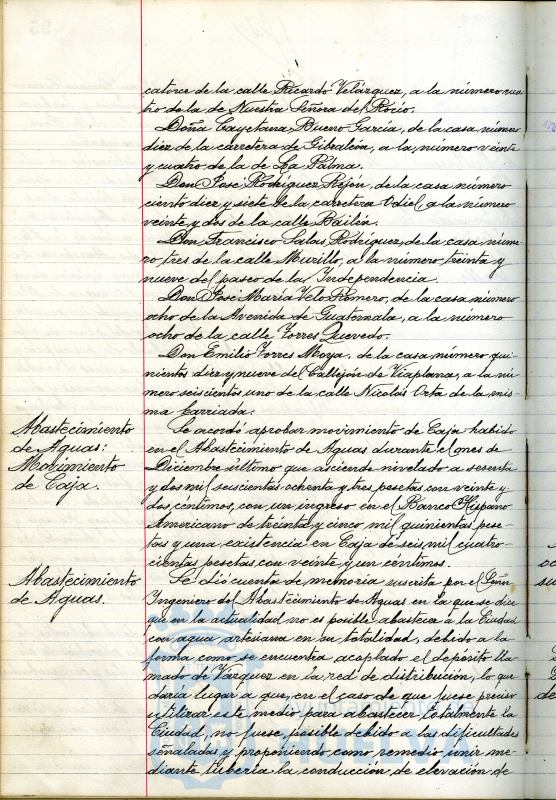 catorce de la calle Ricardo Velázquez, a la número cua
tro de la de Nuestra Señora del Rocio.
Doña Cayetana Bueno Garcia, de la casa número
diez de la carretera de Gibraleón, a la número veinte
y cuatro de la de La Palma.
Don José Rodríguez Rejón, de la casa número
ciento diez y siete de la carretera Odiel a la número
veinte y dos de la calle Bailén.
Don Francisco Salas Rodríguez, de la casa núme-
ro tres de la calle Murillo, a la número treinta y
nueve del paseo de la Independencia.
Don José María Velo Romero, de la casa número
ocho de la Avenida de Guatemala, a la número
ocho de la calle Torres Quevedo.
Don Emilio Torres Moya, de la casa número qui-
nientos diez y nueve del Callejón de Viaplana, a la nú-
mero seiscientos uno de la calle Nicolás Orta de la mis-
ma barriada.
Abastecimiento
de Aguas:
Movimiento
de Caja.
Se acordó aprobar movimiento de Caja habido
en el Abastecimiento de Aguas durante el mes de
Diciembre último que asciende nivelado a sesenta
y dos mil seiscientas ochenta y tres pesetas con veinte y
dos céntimos, con un ingreso en el Banco Hispano
Americano de treinta y cinco mil quinientas pese-
tas y una existencia en Caja de seis mil cuatro-
cientas pesetas con veinte y un céntimos.
Abastecimiento
de Aguas.
Se dió cuenta de memoria suscrita por el Señor
Ingeniero del Abastecimiento de Aguas en la que se dice
que en la actualidad no es posible abastecer a la Ciudad
con agua artesiana en su totalidad, debido a la
forma como se encuentra acoplado el depósito lla-
mado de Vazquez en la red de distribución, lo que
daría lugar a que, en el caso de que fuese preciso
utilizar este medio para abastecer totalmente la
Ciudad, no fuese posible debido a las dificultades
señaladas y proponiendo como remedio, unir me-
diante tubería la conducción de elevación de